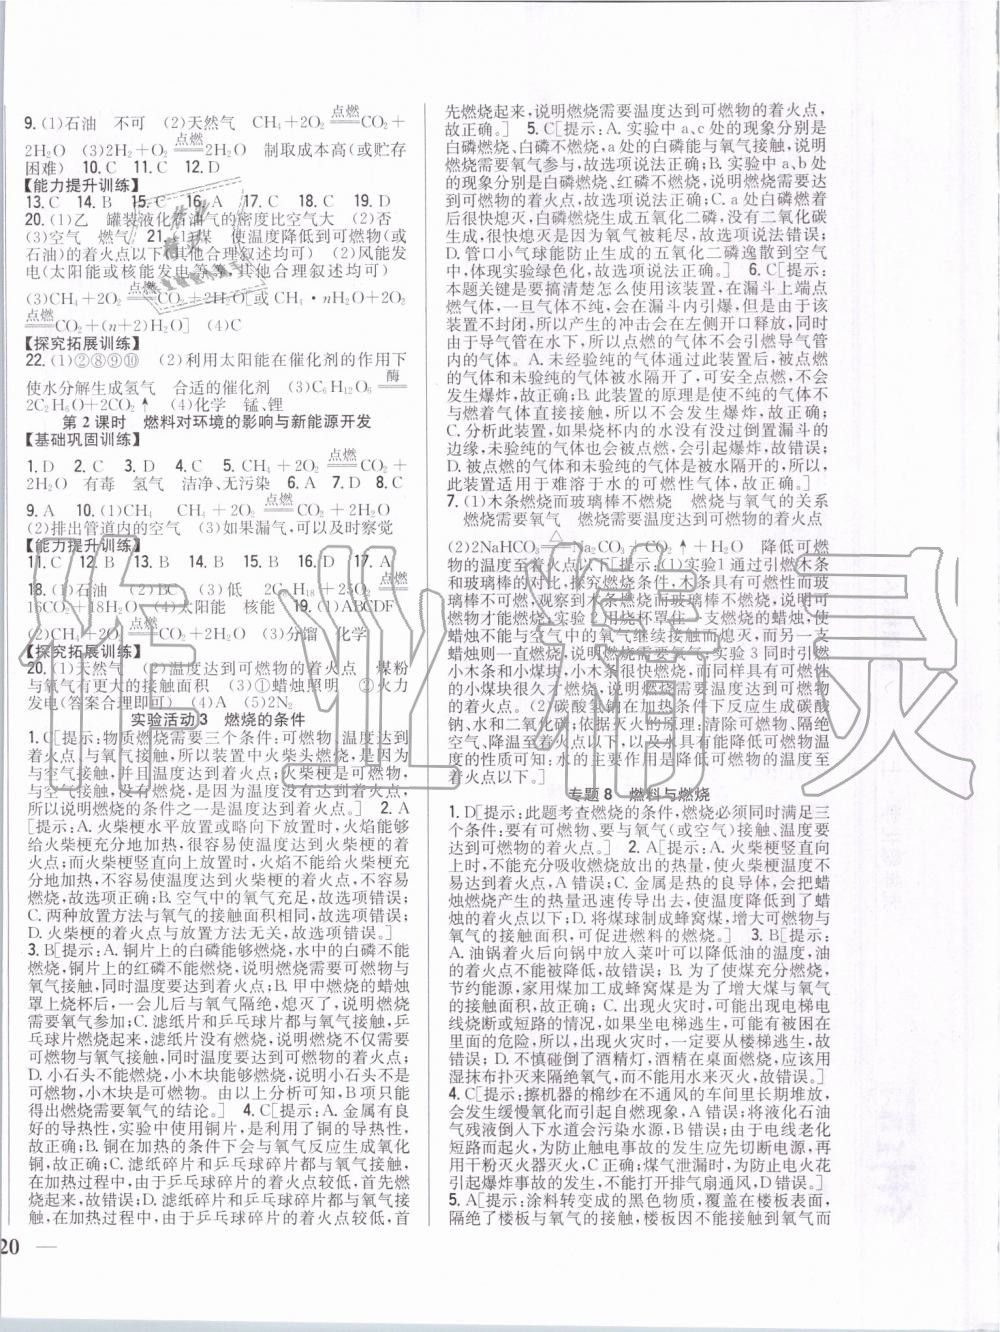 9. (1)石油　不可　(2)天然气　CH₄+2O₂ 点燃 CO₂+
2H₂O　(3)2H₂+O₂ 点燃 2H₂O　制取成本高(或贮存
困难)　10. C　11. C　12. D
【能力提升训练】
13. C　14. B　15. C　16. A　17. C　18. C　19. D
20. (1)乙　罐装液化石油气的密度比空气大　(2)否
(3)空气　燃气　21. (1)煤　使温度降低到可燃物(或
石油)的着火点以下(其他合理叙述均可)　(2)风能发
电(太阳能或核能发电等,其他合理叙述均可)
(3)CH₄+2O₂ 点燃 CO₂+2H₂O[或CH₄·nH₂O+2O₂
点燃 CO₂+(n+2)H₂O]　(4)C
【探究拓展训练】
22. (1)②⑧⑨⑩　(2)利用太阳能在催化剂的作用下
使水分解生成氢气　合适的催化剂　(3)C₆H₁₂O₆ 酶
2C₂H₆O+2CO₂↑　(4)化学　锰、锂
第2课时　燃料对环境的影响与新能源开发
【基础巩固训练】
1. D　2. C　3. D　4. C　5. CH₄+2O₂ 点燃 CO₂+
2H₂O　有毒　氢气　洁净、无污染　6. A　7. D　8. C
9. A　10. (1)CH₄　CH₄+2O₂ 点燃 CO₂+2H₂O
(2)排出管道内的空气　(3)如果漏气,可以及时察觉
【能力提升训练】
11. C　12. B　13. B　14. B　15. B　16. D　17. A
18. (1)石油　(2)BC　(3)低　2C₈H₁₈+25O₂ 点燃
16CO₂+18H₂O　(4)太阳能　核能　19. (1)ABCDF
(2)CH₄+2O₂ 点燃 CO₂+2H₂O　(3)分馏　化学
【探究拓展训练】
20. (1)天然气　(2)温度达到可燃物的着火点　煤粉
与氧气有更大的接触面积　(3)①蜡烛照明　②火力
发电(答案合理即可)　(4)A　(5)2N₂
实验活动3　燃烧的条件
1. C[提示:物质燃烧需要三个条件:可燃物、温度达到
着火点、与氧气接触,所以装置中火柴头燃烧,是因为
与空气接触,并且温度达到着火点;火柴梗是可燃物,
与空气接触,没有燃烧,是因为温度没有达到着火点,
所以说明燃烧的条件之一是温度达到着火点。]　2. A
[提示:A. 火柴梗水平放置或略向下放置时,火焰能够
给火柴梗充分地加热,很容易使温度达到火柴梗的着
火点;而火柴梗竖直向上放置时,火焰不能给火柴梗充
分地加热,不容易使温度达到火柴梗的着火点,不容易
燃烧,故选项正确;B. 空气中的氧气充足,故选项错误;
C. 两种放置方法与氧气的接触面积相同,故选项错误;
D. 火柴梗的着火点与放置方法无关,故选项错误。]
3. B[提示:A. 铜片上的白磷能够燃烧,水中的白磷不能
燃烧,铜片上的红磷不能燃烧,说明燃烧需要可燃物与
氧气接触,同时温度要达到着火点;B. 甲中燃烧的蜡烛
罩上烧杯后,一会儿后与氧气隔绝,熄灭了,说明燃烧
需要氧气参加;C. 滤纸片和乒乓球片都与氧气接触,乒
乓球片燃烧起来,滤纸片没有燃烧,说明燃烧不仅需要
可燃物与氧气接触,同时温度要达到可燃物的着火点;
D. 小石头不能燃烧,小木块能够燃烧,说明小石头不是
可燃物,小木块是可燃物。由以上分析可知,B项只能
得出燃烧需要氧气的结论。]　4. C[提示:A. 金属有良
好的导热性,实验中使用铜片,是利用了铜的导热性,
故正确;B. 铜在加热的条件下会与氧气反应生成氧化
铜,故正确;C. 滤纸碎片和乒乓球碎片都与氧气接触,
在加热过程中,由于乒乓球碎片的着火点较低,首先燃
烧起来,故错误;D. 滤纸碎片和乒乓球碎片都与氧气接
触,在加热过程中,由于乒乓球碎片的着火点较低,首
先燃烧起来,说明燃烧需要温度达到可燃物的着火点,
故正确。]　5. C[提示:A. 实验中a、c处的现象分别是
白磷燃烧、白磷不燃烧,a处的白磷能与氧气接触,说明
燃烧需要氧气参与,故选项说法正确;B. 实验中a、b处
的现象分别是白磷燃烧、红磷不燃烧,说明燃烧需要达
到可燃物的着火点,故选项说法正确;C. a处白磷燃着
后很快熄灭,白磷燃烧生成五氧化二磷,没有二氧化碳
生成,很快熄灭是因为氧气被耗尽,故选项说法错误;
D. 管口小气球能防止生成的五氧化二磷逸散到空气
中,体现实验绿色化,故选项说法正确。]　6. C[提示:
本题关键是要搞清楚怎么使用该装置,在漏斗上端点
燃气体,一旦气体不纯,会在漏斗内引爆,但是由于该
装置不封闭,所以产生的冲击会在左侧开口释放,同时
由于导气管在水下,所以产生的火焰也不会引燃导气管
内的气体。A. 未经验纯的气体通过此装置后,被点燃
的气体和未验纯的气体被水隔开了,可安全点燃,不会
发生爆炸,故正确;B. 此装置的原理是使不纯的气体不
与燃着气体直接接触,所以不会发生爆炸,故正确;
C. 分析此装置,如果烧杯内的水没有没过倒置漏斗的
边缘,未验纯的气体也会被点燃,会引起爆炸,故错误;
D. 被点燃的气体和未验纯的气体是被水隔开的,所以
此装置适用于难溶于水的可燃性气体,故正确。]
7. (1)木条燃烧而玻璃棒不燃烧　燃烧与氧气的关系
燃烧需要氧气　燃烧需要温度达到可燃物的着火点
(2)2NaHCO₃ △ Na₂CO₃+CO₂↑+H₂O　降低可燃
物的温度至着火点以下[提示:(1)实验1通过引燃木条
和玻璃棒的对比,探究燃烧条件:木条具有可燃性而玻
璃棒不具有可燃性,观察到木条燃烧而玻璃棒不燃烧,说明可
燃物才能燃烧;实验2用烧杯罩住一支燃烧的蜡烛,使
蜡烛不能与空气中的氧气继续接触而熄灭,而另一支
蜡烛则一直燃烧,说明燃烧需要氧气;实验3同时引燃
小木条和小煤块,小木条很快燃烧,而同样具有可燃性
的小煤块很久才燃烧,说明燃烧需要温度达到可燃物
的着火点。(2)碳酸氢钠在加热条件下反应生成碳酸
钠、水和二氧化碳;依据灭火的原理:清除可燃物、隔绝
空气、降温至着火点以下,以及水具有能降低可燃物温
度的性质可知:水的主要作用是降低可燃物的温度至
着火点以下。]
专题8　燃料与燃烧
1. D[提示:此题考查燃烧的条件,燃烧必须同时满足三
个条件:要有可燃物、要与氧气(或空气)接触、温度要
达到可燃物的着火点。]　2. A[提示:A. 火柴竖直向
上时,不能充分吸收燃烧放出的热量,使火柴梗温度不
易达到着火点,A错误;C. 金属是热的良导体,会把蜡
烛燃烧产生的热量迅速传导出去,使温度降低到了蜡
烛的着火点以下;D. 将煤球制成蜂窝煤,增大可燃物与
氧气的接触面积,可促进燃料的燃烧。]　3. B[提示:
A. 油锅着火后向锅中放入菜叶可以降低油的温度,油
的着火点不能被降低,故错误;B. 为了使煤充分燃烧,
节约能源,家用煤加工成蜂窝煤是为了增大煤与氧气
的接触面积,故正确;C. 出现火灾时,可能出现电梯电
线烧断或短路的情况,如果坐电梯逃生,可能有被困在
里面的危险,所以,出现火灾时,一定要从楼梯逃生,故
错误;D. 不慎碰倒了酒精灯,酒精在桌面燃烧,应该用
湿抹布扑灭来隔绝氧气,而不能用水来灭火,故错误。]
4. C[提示:擦机器的棉纱在不通风的车间里长期堆放,
会发生缓慢氧化而引起自燃现象,A错误;将液化石油
气残液倒入下水道会污染水源,B错误;由于电线老化
短路而起火,为防止触电事故的发生应先切断电源,再
用干粉灭火器灭火,C正确;煤气泄漏时,为防止电火花
引起爆炸事故的发生,不能打开排气扇通风,D错误。]
5. A[提示:涂料转变成的黑色物质,覆盖在楼板表面,
隔绝了楼板与氧气的接触,楼板因不能接触到氧气而
20 —
作业精灵